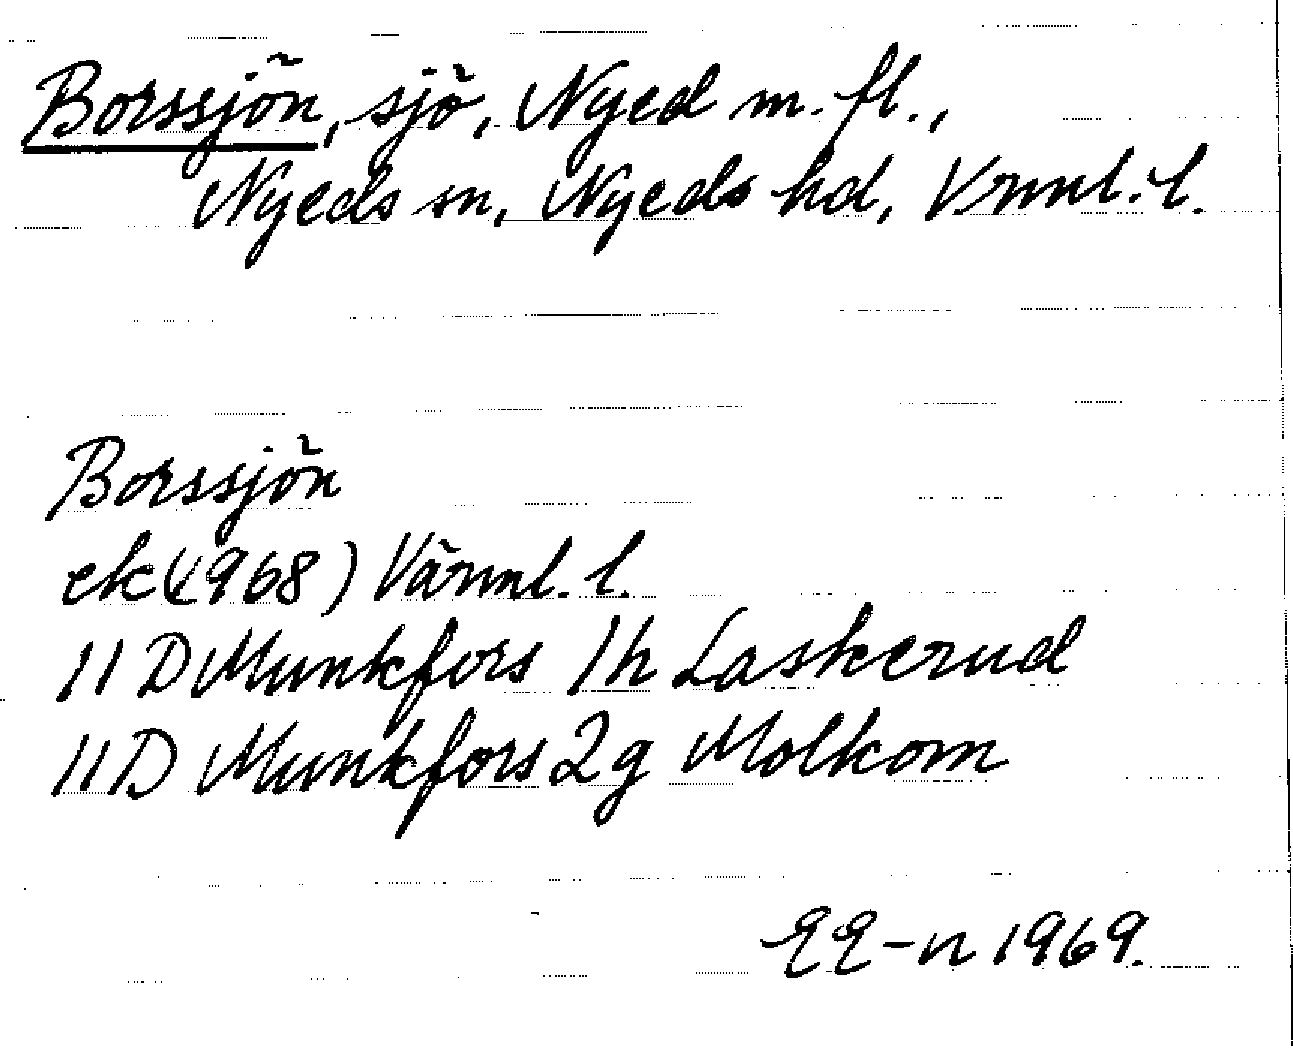 Borssjön, sjö, Nyed m. fl.,
Nyeds sn, Nyeds hd, Vrml. l.
Borssjön
ek (1968) Värml. l.
11 D Munkfors 1h Laskerud
11D Munkfors 2g Molkom
EE-n 1969.